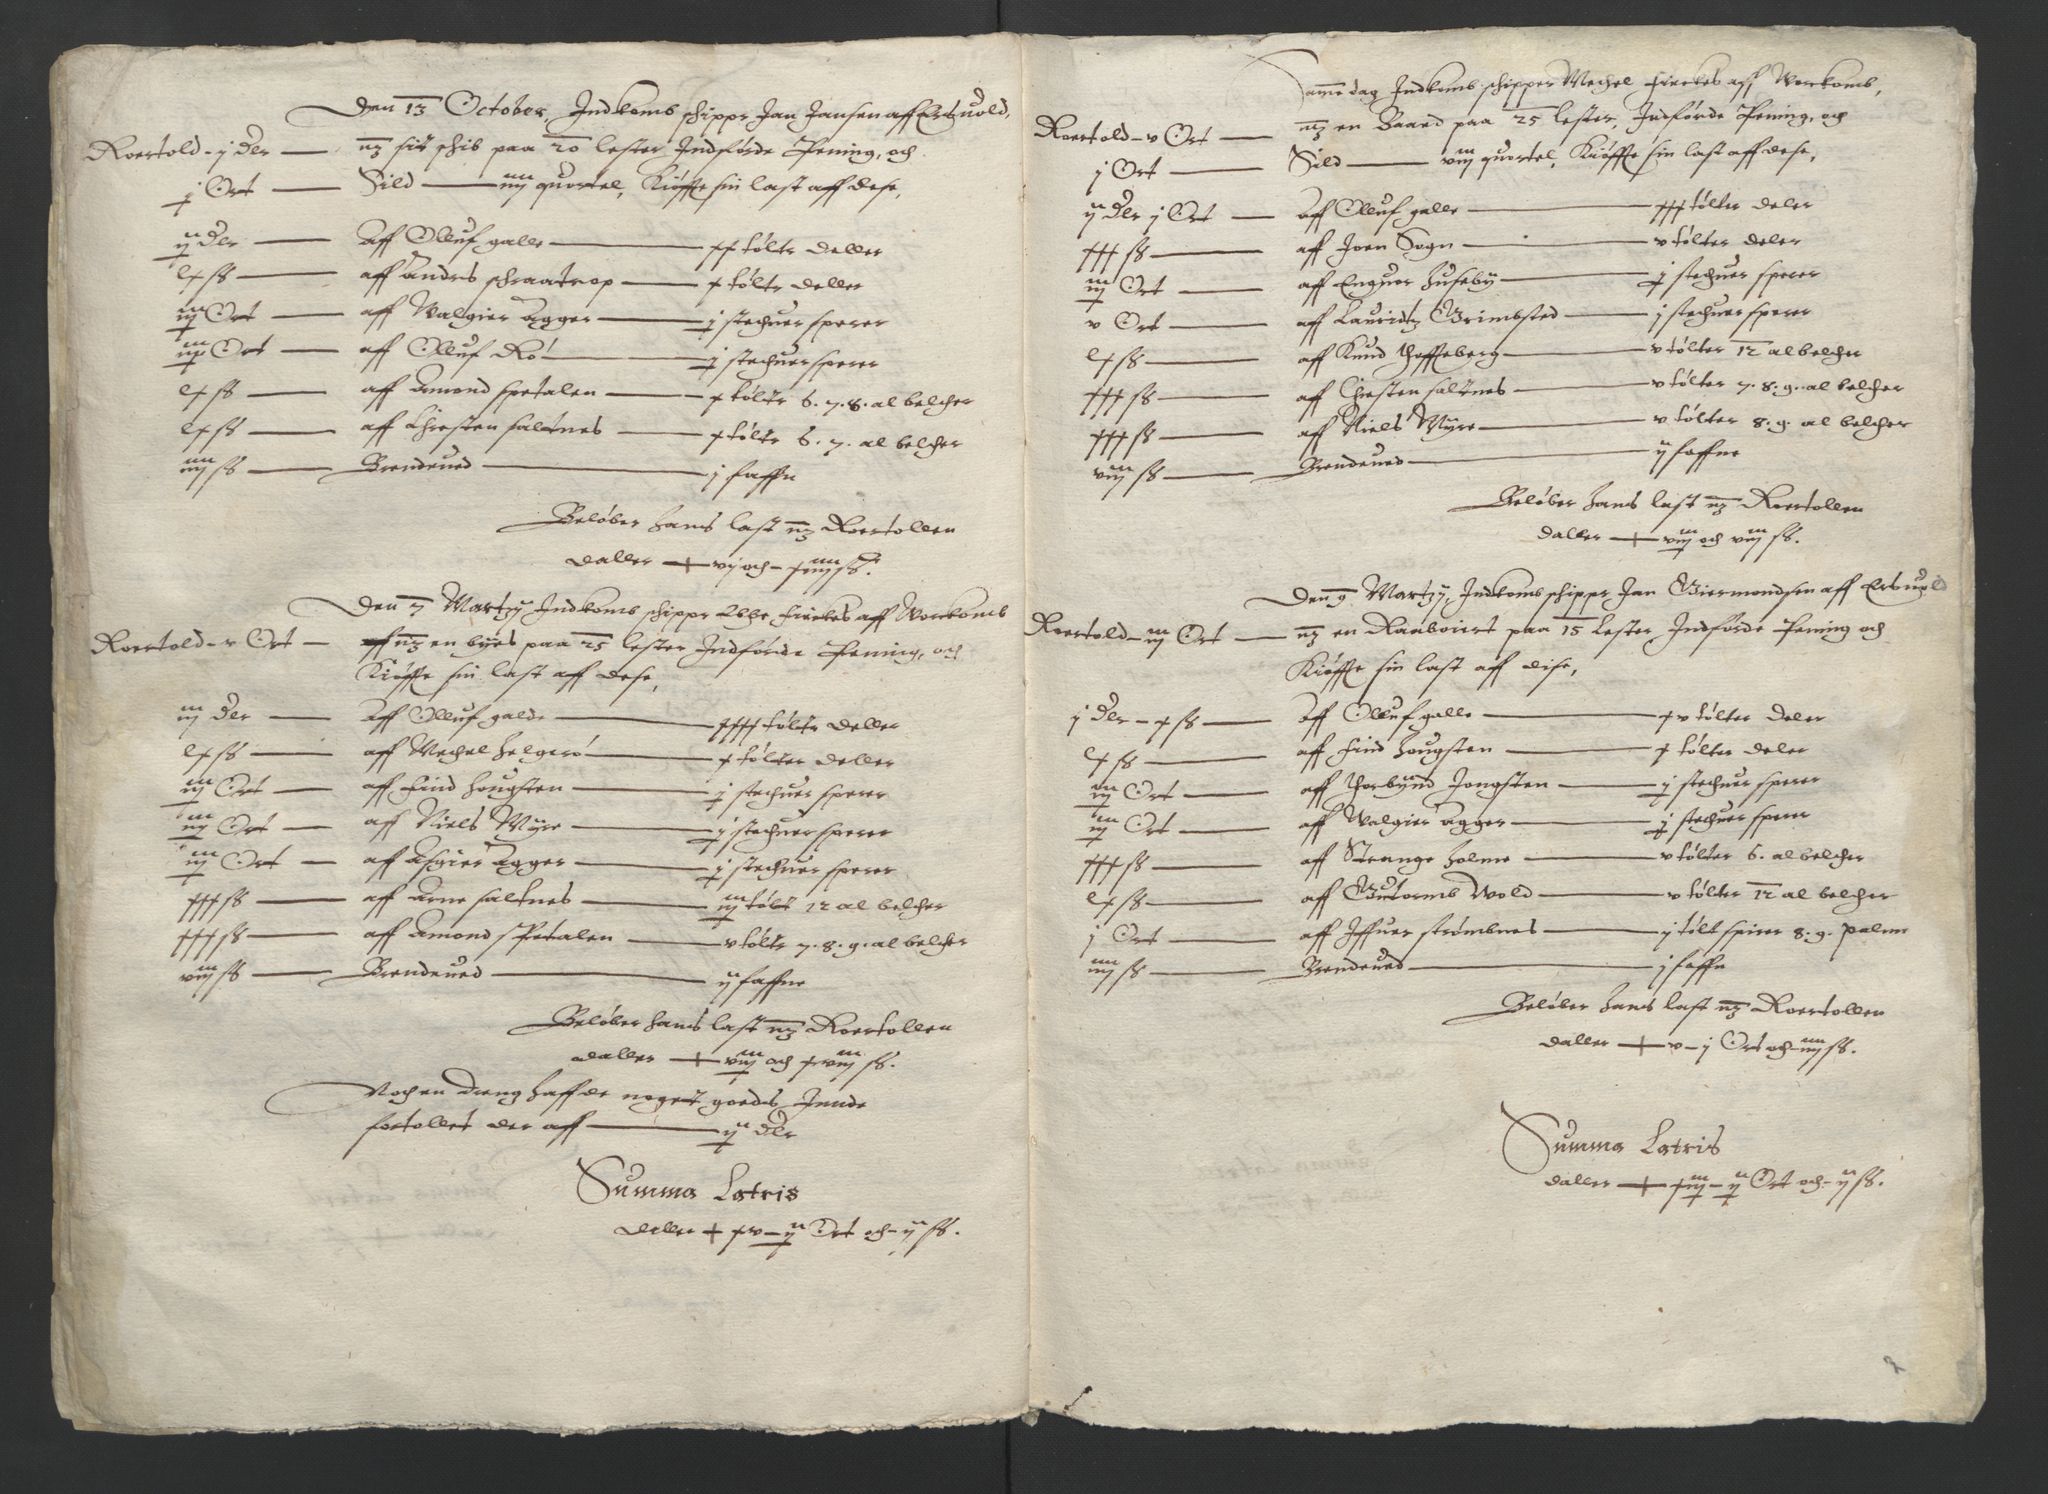 Den 13 October, Indkomb schippr Jan Jansen aff Ertzuold,
Roertold - j dlr — nz sit schib paa 20 lester Indførde Pening, och
j Ort — Sild — iiij quortel, Kiøffte sin last aff dese,
ij dlr — Aff Olluf galle — xx tolltr deller
lx ß — aff Andris schraatrop — x tolltr deller
iij Ort — aff Valgier Agger — j stechuer sperer
iij Ort — aff Olluf Rø — j stechuer sperer
lx ß — aff Amond spetalen — x tolltr 6. 7. 8. al belcher
lx ß — aff Chresten saltnes — x tolltr 6. 7. al belcher
iiij ß — Brendeued — j faffn
Beløber hans last nz Roertollen
daller + vij och - xiiij ß.
Den 7 Martzy Indkomb schippr Ebbe Fierkes aff Workomb
Roertold - v Ort — nz en byes paa 25 lester Indførde Pening, och
Kiøffte sin last aff dese,
iij dlr — Aff Olluf galde — xxxx tolltr deller
lx ß — aff Mechel helgerø — x tollter deller
iij Ort — aff Find hougsten — j stechuer sperer
iij Ort — aff Niels Myre — j stechuer sperer
iij Ort — aff Asgier Agger — j stechuer sperer
xxx ß — aff Arne saltnes — iij tollt 12 al belcher
xxx ß — aff Amond spetalen — v tolltr 7. 8. 9. al belcher
viij ß — Brendeued — ij faffne
Beløber hans last nz Roertollen
daller + viij och xviij ß.
Noch en dreng haffde noget goeds Inde
fortollet der aff — ij dlr
Summa Latris
daller + xv - ij Ort och - ij ß.
Samme dag Indkomb schipper Mechel Fierkes aff Workomb,
Roertold - v Ort — nz en Baad paa 25 lester, Indførde Pening, och
j Ort — Sild — viij quortel, Kiøffte sin last aff dese,
ij dlr j Ort — aff Olluf galle — xxx tollter deler
xxx ß — aff Joen Sogn — v tollter deler
iij Ort — aff Enguor Huseby — j stechuer sperer
v Ort — aff Lauridtz Grimbsted — j stechuer sperer
lx ß — aff Knud Thoffeberg — v tollter 12 al belcher
xxx ß — aff Chresten saltnes — v tollter 7. 8. 9. al belcher
xxx ß — aff Niels Myre — v tollter 8. 9. al belcher
viij ß — Brendeued — ij faffne
Beløber hans last nz Roertollen
daller + viij och viij ß.
Den 9 Martzy, Indkomb schippr Jan Giermondsen aff Ertzuold
Roertold - iij Ort — nz en Kraaboiert paa 15 Lester Indførde Pening och
Kiøffte sin last aff dise,
j dlr - x ß — aff Olluf galle — xv tollter deler
lx ß — aff Find Hougsten — x tollter deler
iij Ort — aff Thorbiønd Hougsten — j stechuer sperer
iij Ort — aff Valgier Agger — j stechuer sperer
xxx ß — aff Strange Holme — v tollter 6. al belcher
lx ß — aff Guttormb Wold — v tollter 12 al belcher
j Ort — aff Iffuer strømbnes — j tollt spirer 8. 9. palm
iiij ß — Brendeued — j faffn
Beløber hans last nz Roertollen
daller + v - j Ort och - iiij ß.
Summa Latris
daller + xiij - ij Ort och - ij ß.